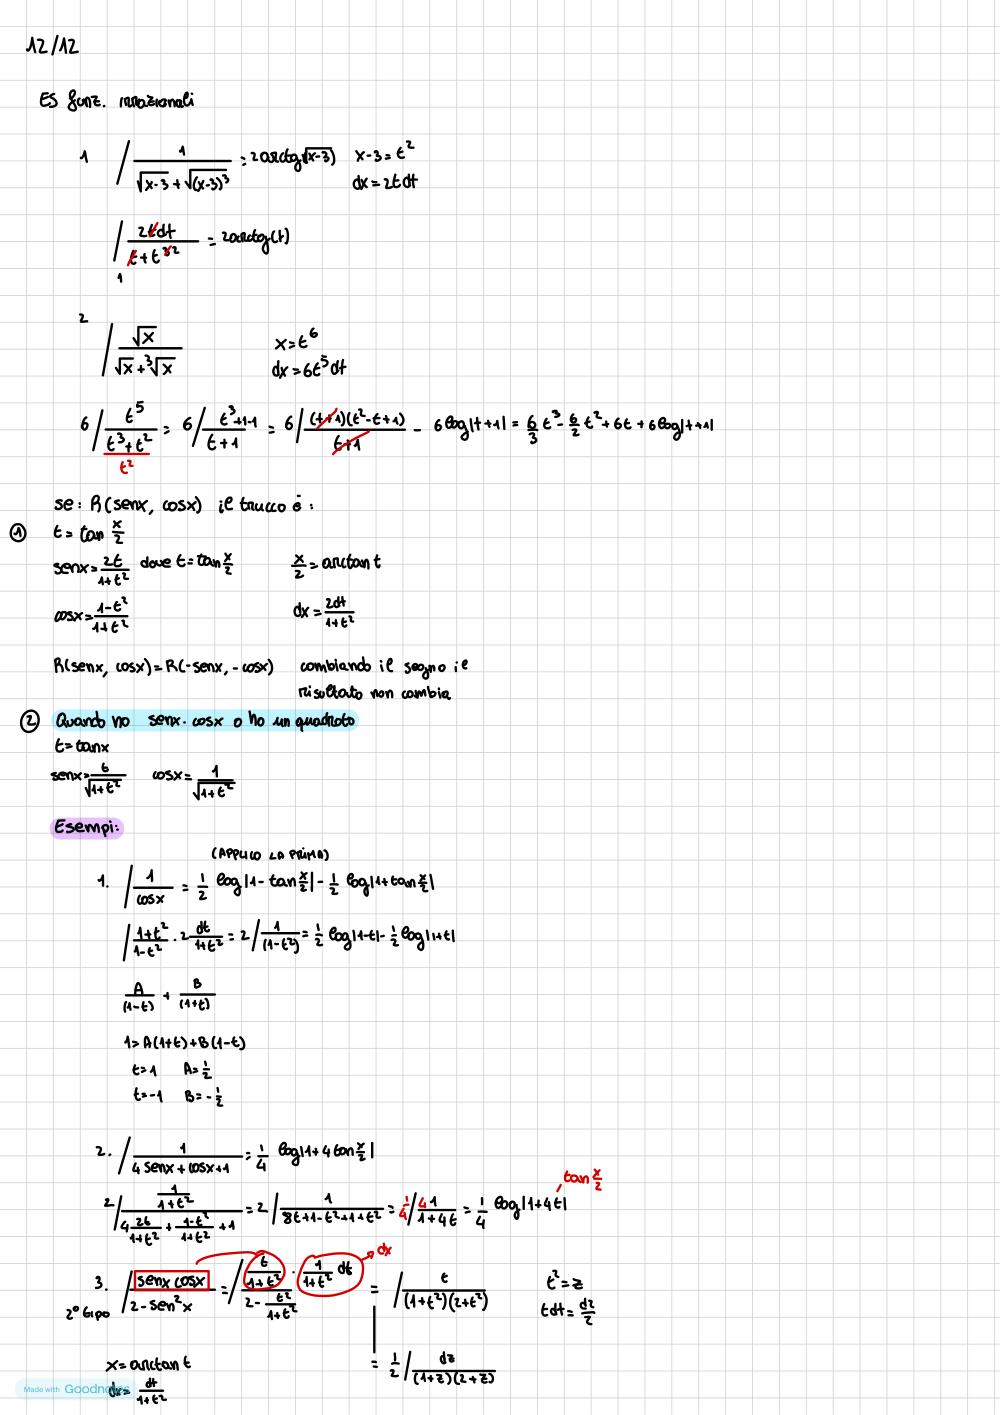 12/12
ES funz. irrazionali
1 ∫ 1/(√(x-3) + √(x-3)³) = 2arctg(√(x-3)) x-3 = t²
dx = 2t dt
∫ 2t dt/(t + t³ ²) = 2arctg(t)
1
2 ∫ √x/(√x + ³√x) x = t⁶
dx = 6t⁵ dt
6∫ t⁵/(t³+t²) = 6∫ (t³+1-1)/(t+1) = 6∫ (t+1)(t²-t+1)/(t+1) - 6log|t+1| = 6/3 t³ - 6/2 t² + 6t + 6log|t+1|
t²
se: R(senx, cosx) il trucco è:
① t = tan x/2
senx = 2t/(1+t²) dove t = tan x/2 x/2 = arctan t
cosx = (1-t²)/(1+t²) dx = 2dt/(1+t²)
R(senx, cosx) = R(-senx, -cosx) cambiando il segno il
risultato non cambia
② Quando ho senx·cosx o ho un quadrato
t = tanx
senx = t/√(1+t²) cosx = 1/√(1+t²)
Esempi:
(APPLICO LA PRIMA)
1. ∫ 1/cosx = 1/2 log|1-tan x/2| - 1/2 log|1+tan x/2|
∫ (1+t²)/(1-t²) · 2 dt/(1+t²) = 2∫ 1/(1-t²) = 1/2 log|1-t| - 1/2 log|1+t|
A/(1-t) + B/(1+t)
1 = A(1+t) + B(1-t)
t=1 A = 1/2
t=-1 B = -1/2
2. ∫ 1/(4senx + cosx + 1) = 1/4 log|1+4tan x/2|
tan x/2
2∫ (1/(1+t²))/(4 2t/(1+t²) + (1-t²)/(1+t²) + 1) = 2∫ 1/(8t+1-t²+1+t²) = 1/4 ∫ 4 1/(1+4t) = 1/4 log|1+4t|
dx
3. ∫ senx cosx/(2-sen²x) = ∫ (t/(1+t²))/(2 - t²/(1+t²)) · 1/(1+t²) dt = ∫ t/((1+t²)(2+t²)) t² = z
2° tipo t dt = dz/2
x = arctan t = 1/2 ∫ dz/((1+z)(2+z))
dx = dt/(1+t²)
Made with Goodnotes